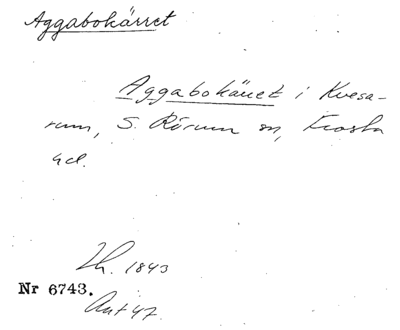 Aggabokärret
Aggabokärret i Kvesa-
rum, S. Rörum sn, Frosta
hd.
Lh. 1843
Nr 6743.
Ant 47.